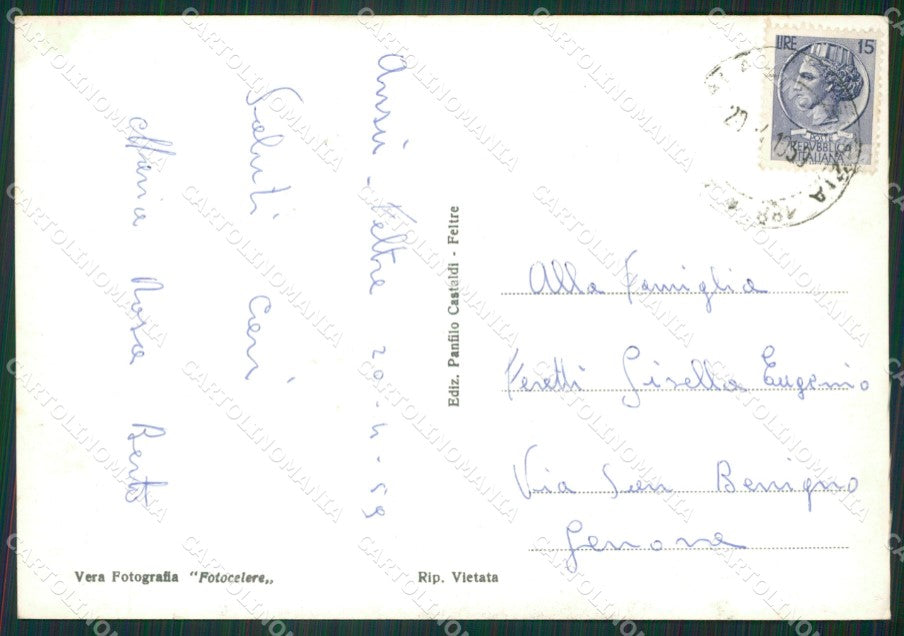 Anzù - Feltre 20-4-59
Saluti cari
Maria Rosa Berto
Ediz. Panfilo Castaldi - Feltre
Vera Fotografia "Fotocelere„
Rip. Vietata
LIRE 15
POSTE
REPVBBLICA
ITALIANA
Alla Famiglia
Feretti Gisella Eugenio
Via San Benigno
Genova
CARTOLINOMANIA